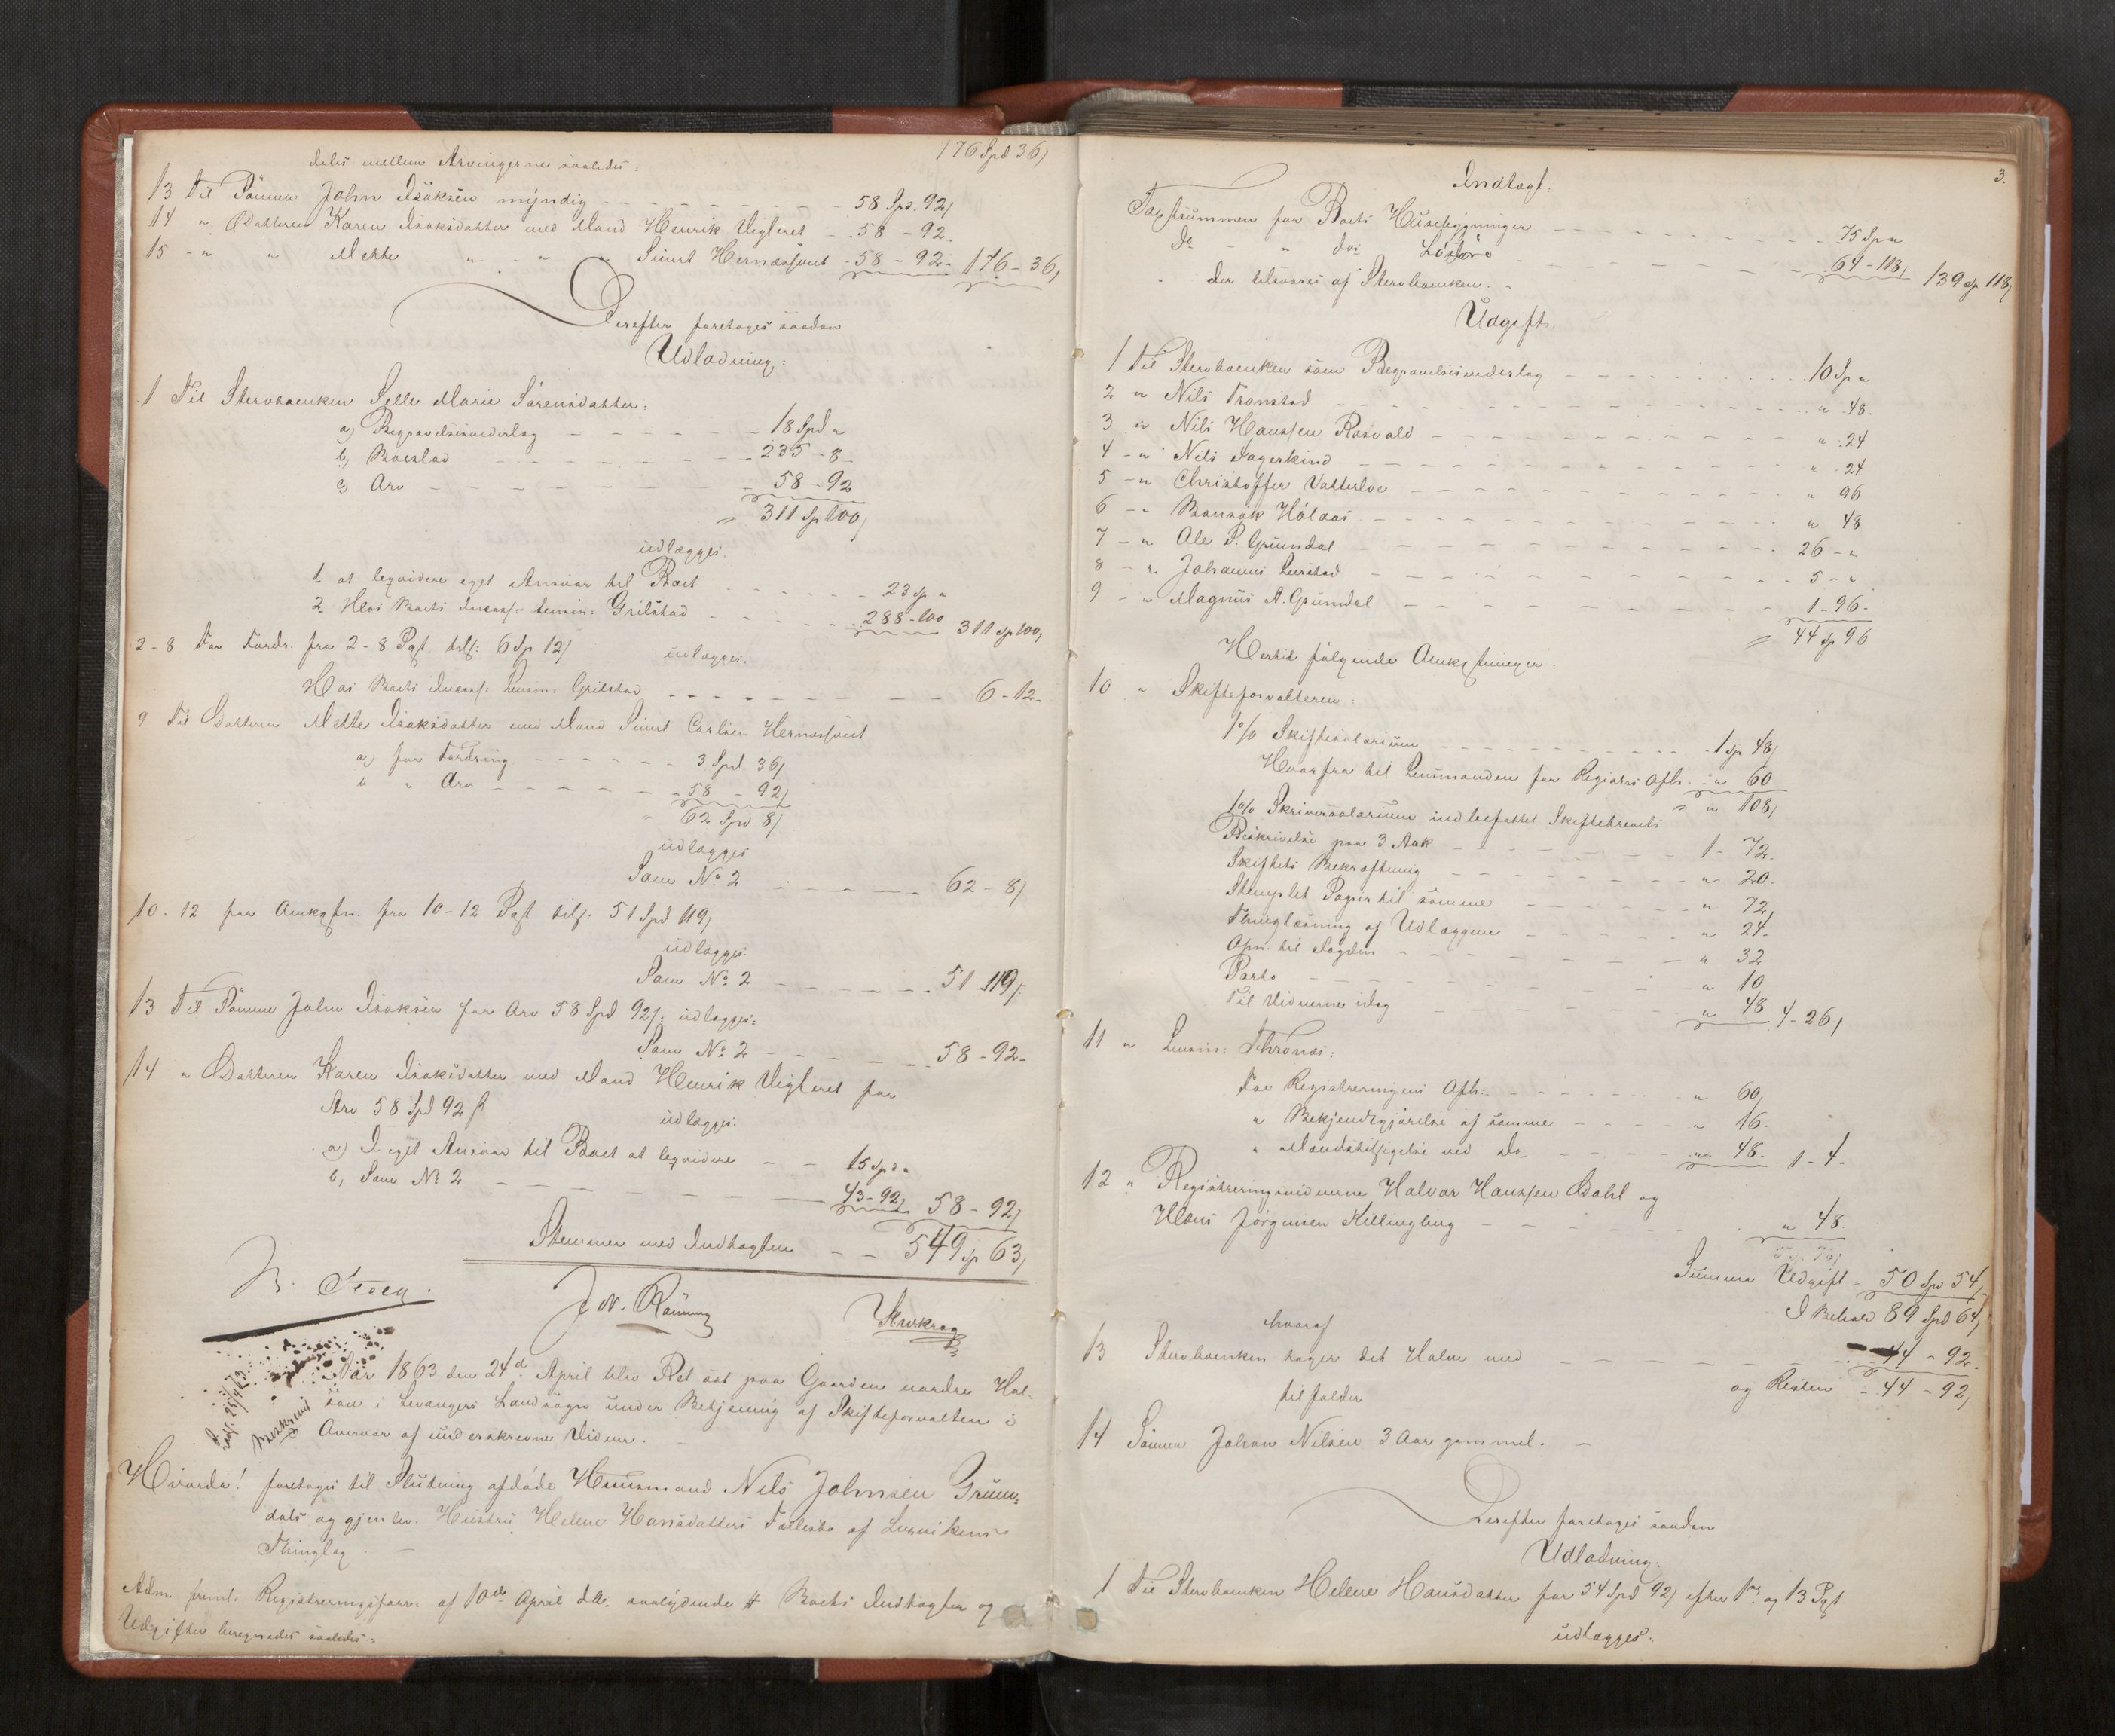 176 Spd 36/
deles mellem Arvingerne saaledes:
13 Til Sönnen John Isaksen myndig - - - 58 Spd. 92/
14 " Datteren Karen Isaksdatter med Mand Henrik - 58 - 92
15 - " " Mette " - " " Simt Hernæs - 58 - 92 - 176 - 36/
Derefter foretoges saadan
Udlodning:
1 Til Stervboenken Marie Sörensdatter:
a) Begravelsesvederlag - - - 18 Spd "
b) Boeslod - - - 235 - 8 -
c) Arv - - - 58 - 92
311 Sp 100/
udlægges:
1 at leqvidere eget Ansvar til Boet - - - 23 Sp "
2 Hos Boets Grilstad - - - 288 - 100 311 Sp 100/
2 - 8 For Fordr. fra 2 - 8 Pgt. tils: 6 Sp 12/ udlægges:
Hos Boets Lensm: Grilstad - - - 6 - 12 -
9 Til Datteren Mette Isaksdatter med Mand Simt Carlsen
a) for Fordring - - - 3 Spd 36/
b " Arv - - - 58 - 92/
62 Spd 8/
udlægges
Som No 2 - - - 62 - 8/
10 - 12 for Omkostn. fra 10 - 12 Pgt tils: 51 Spd 119/
udlægges:
Som No 2 - - - 51 - 119/
13 Til Sönnen John Isaksen for Arv 58 Spd 92/: udlægges:
Som No 2 - - - 58 - 92 -
14 " Datteren Karen Isaksdatter med Mand Henrik for
Arv 58 Spd 92 ß udlægges:
a) I eget Ansvar til Boet at leqvidere - - 15 Spd "
b, Som No 2 - - - 43 - 92/ 58 - 92/
Stemmer med Indtægten - - 549 Sp 63/
Aar 1863 den 24d April blev Ret sat paa Gaarden nordre Hal-
san i Levangers Landsogn under Betjening af Skifteforvalteren i
Overvær af underskrevne Vidner. -
Beskreven
Hvorda! foretoges til Slutning afdöde Huusmand Nils Johnsen Grun-
dals og gjenlev. Hustru Helene Hansdatters Fællesbo af
Thinglag. -
Adm freml. Registreringsforr. af 10de April d.A. saalydende # Boets Indtægter og
Udgifter beregnedes saaledes:
3.
Indtægt:
Taxtsummen for Boets Husebygninger - - - 75 Sp "
Do - " dos Lösöre - - - 64 - 118/ 139 Sp 118/
der tilsvares af Stervboenken. -
Udgift.
1 Til Stervboenken som Begravelsesvederlag - - - 10 Sp "
2 " Nils Tronstad - - - " 48 -
3 " Nils Hanssen Rosvold - - - " 24
4 - " Nils Fagerkind - - - " - 24
5 - " Christoffer - - - " 96
6 - " - - - " 48
7 - " Ole P. Grundal - - - 26 - "
8 - " Johannes - - - 5 - "
9 - " Magnus A. Grundal - - - 1 - 96 -
44 Sp 96
Hertil fölgende Omkostninger:
10 " Skifteforvalteren:
1% Skiftesalarium - - - 1 Sp 48/
Hvorfra til Lensmanden for Registrs Afh. " 60
" 108/
1% Skriversalarium indbefattet Skiftebrevets
Beskrivelse paa 3 Ark - - - 1 - 72 -
Skiftets Bekræftning - - - " 20 -
Stemplet Papir til samme - - - " 72/
Thinglæsning af Udlæggene - - - " 24 -
Opn. til Fogden - - - " 32
Porto - - - " 10
Til Vidnerne idag - - - " 48 4 - 26/
11 " Lensm: Thrones:
For Registreringens Afh: - - - " 60/
" Bekjendtgjörelse af samme - - - " 16 -
" Mandstilsigelse ved do - - - " 48 - 1 - 4 -
12 " Registreringsvidnerne Halvor Hanssen Dahl og
Hans Jörgensen Killingberg - - - " 48
Summa Udgift - 50 Spd 54/
I Behold 89 Spd 64/
hvoraf
13 Stervboenken tager det Halve med - - - 44 - 92 -
og Resten - 44 - 92/
tilfalder
14 Sönnen Johan Nilsen 3 Aar gammel. -
Derefter foretoges saadan
Udlodning:
1 Til Stervboenken Helene Hansdatter for 54 Spd 92/ efter 1ste og 13 Pgt
udlægges: